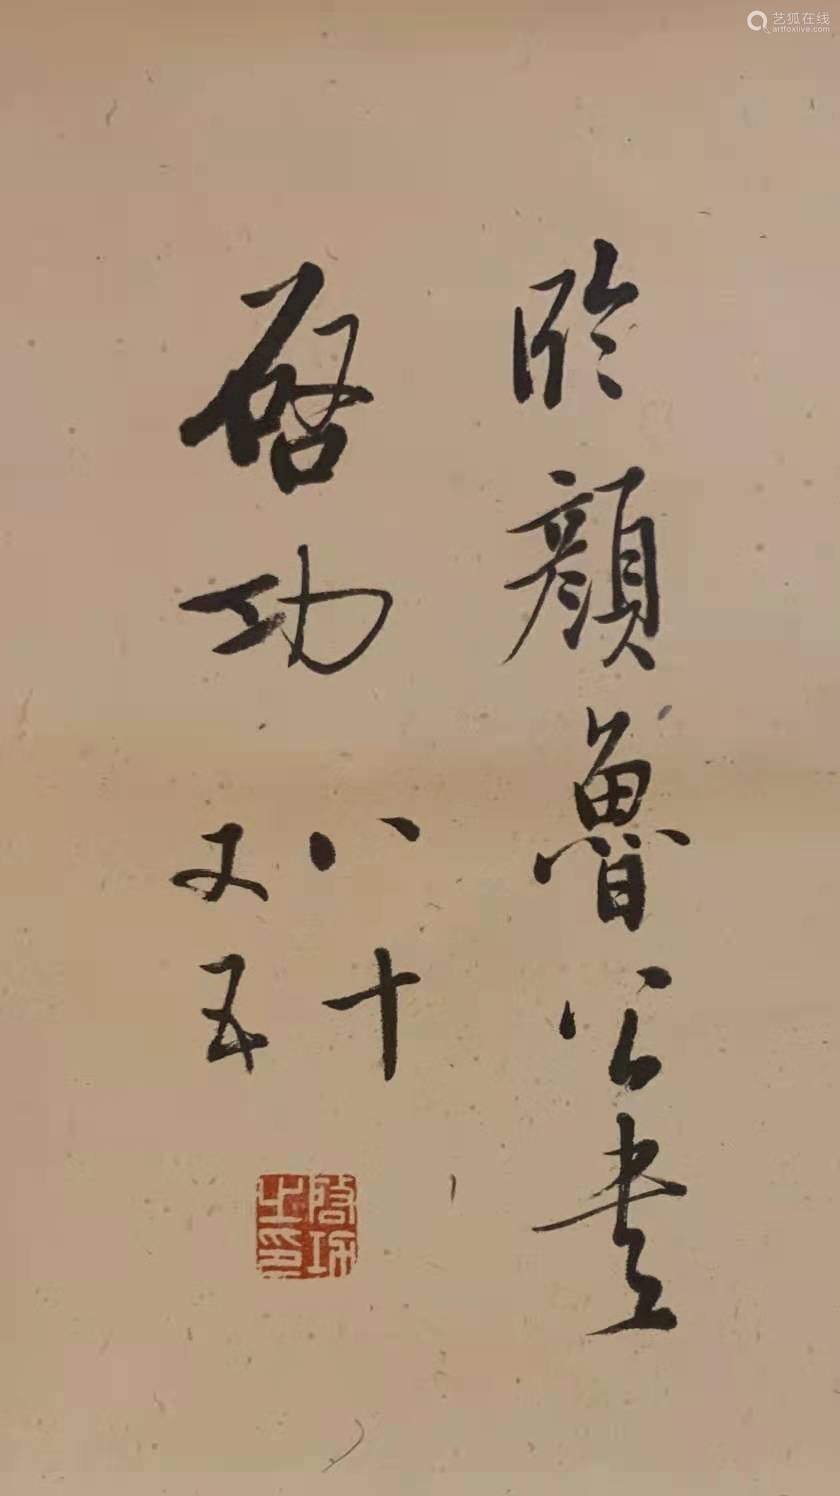 臨顔魯公書
啓功
八十
又五
啓功之印
艺狐在线
artfoxlive.com